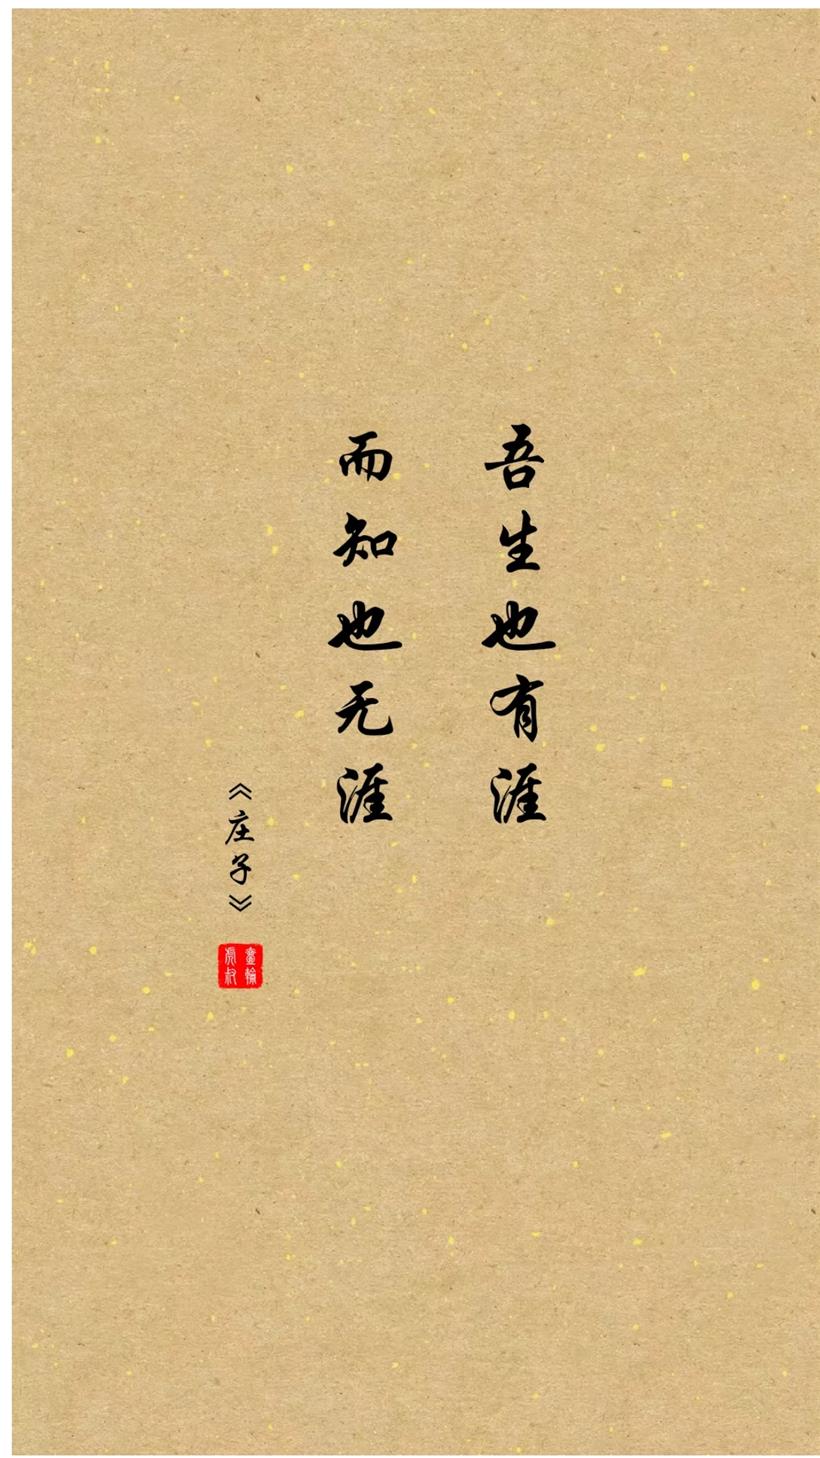 吾生也有涯
而知也无涯
《庄子》